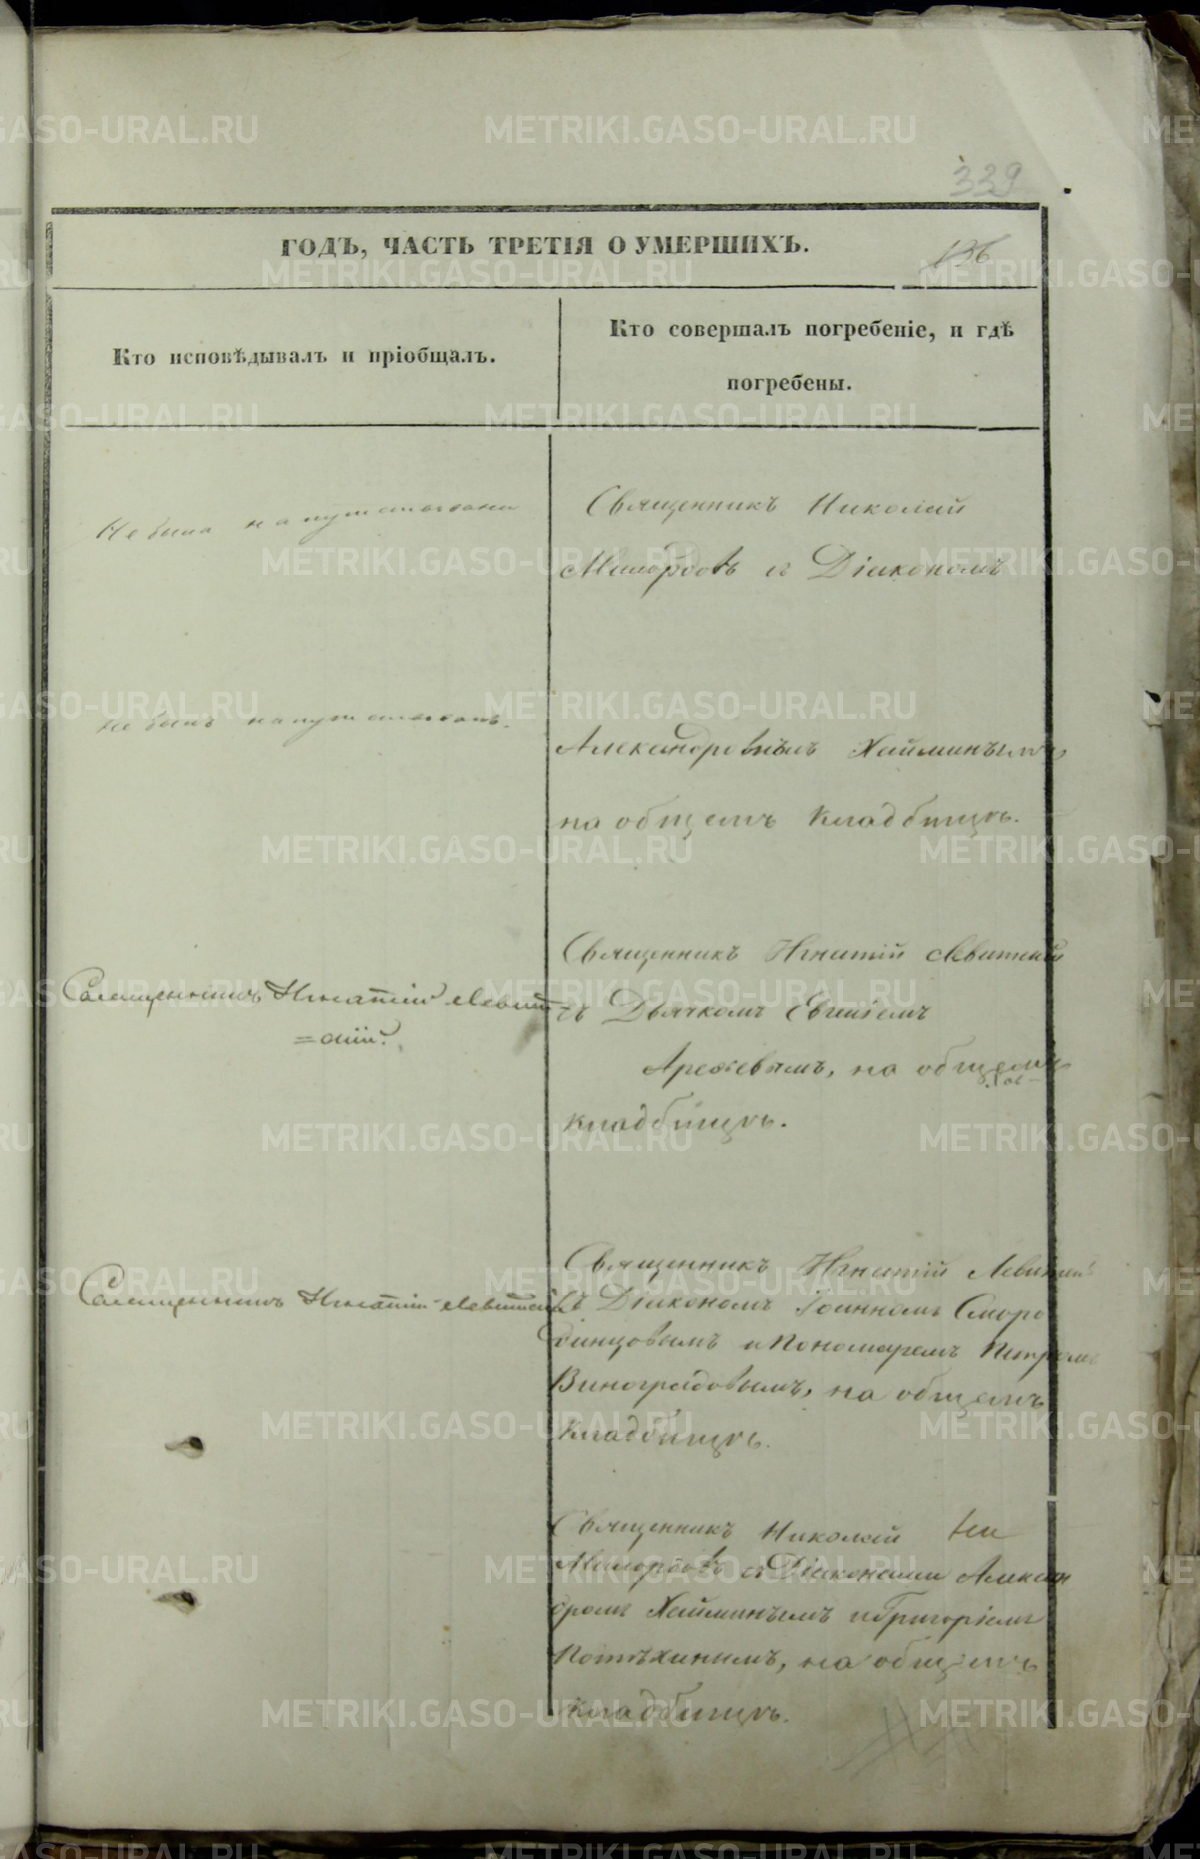 339
ГОДЪ, ЧАСТЬ ТРЕТІЯ О УМЕРШИХЪ.
136
Кто исповѣдывалъ и пріобщалъ.
Кто совершалъ погребеніе, и гдѣ
погребены.
Не была напутствована
Священникъ Николай
съ Діакономъ
не былъ напутствованъ.
Александровымъ Хайминымъ,
на общемъ кладбищѣ.
Священникъ Игнатій Левит
=скій.
Священникъ Игнатій Левитскій
съ Дьячкомъ Евгеніемъ
на общемъ
кладбищѣ.
Священникъ Игнатій Левитскій
Священникъ Игнатій Левитскій
съ Діакономъ Іоанномъ Сморо
динцовымъ и Пономаремъ Петромъ
Виноградовымъ, на общемъ
кладбищѣ.
Священникъ Николай
съ Діаконами Алексан
дромъ Хайминымъ и Григоріемъ
Потѣхинымъ, на общемъ
кладбищѣ.
METRIKI.GASO-URAL.RU